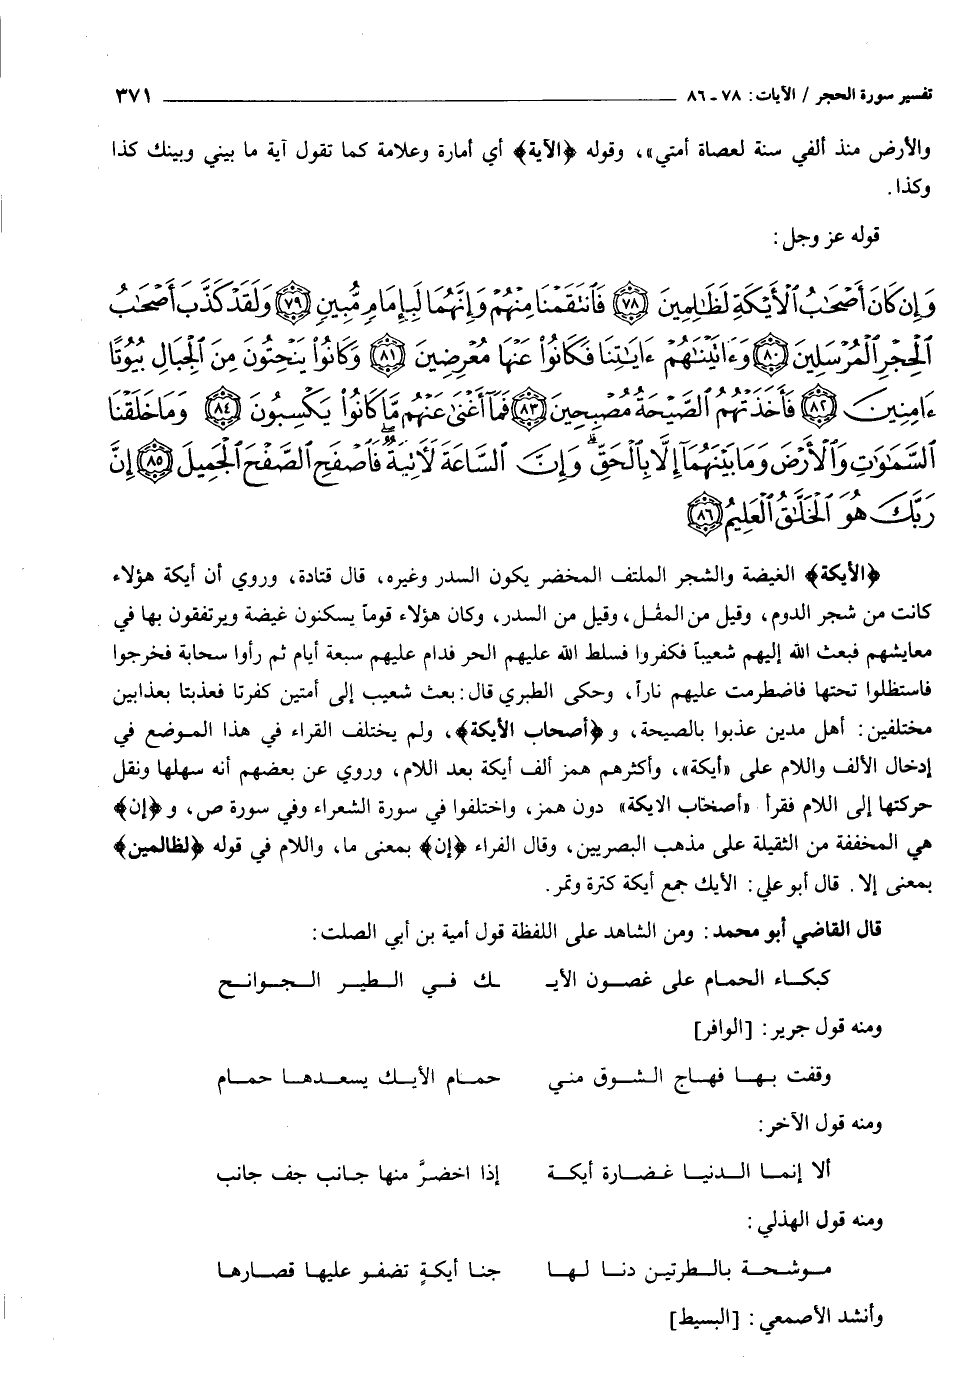 تفسير سورة الحجر / الآيات: ٧٨ ـ ٨٦ ٣٧١
والأرض منذ ألفي سنة لعصاة أمتي»، وقوله ﴿الآية﴾ أي أمارة وعلامة كما تقول آية ما بيني وبينك كذا
وكذا.
قوله عز وجل:
وَإِن كَانَ أَصْحَٰبُ ٱلْأَيْكَةِ لَظَٰلِمِينَ ﴿٧٨﴾ فَٱنتَقَمْنَا مِنْهُمْ وَإِنَّهُمَا لَبِإِمَامٍ مُّبِينٍ ﴿٧٩﴾ وَلَقَدْ كَذَّبَ أَصْحَٰبُ
ٱلْحِجْرِ ٱلْمُرْسَلِينَ ﴿٨٠﴾ وَءَاتَيْنَٰهُمْ ءَايَٰتِنَا فَكَانُوا۟ عَنْهَا مُعْرِضِينَ ﴿٨١﴾ وَكَانُوا۟ يَنْحِتُونَ مِنَ ٱلْجِبَالِ بُيُوتًا
ءَامِنِينَ ﴿٨٢﴾ فَأَخَذَتْهُمُ ٱلصَّيْحَةُ مُصْبِحِينَ ﴿٨٣﴾ فَمَآ أَغْنَىٰ عَنْهُم مَّا كَانُوا۟ يَكْسِبُونَ ﴿٨٤﴾ وَمَا خَلَقْنَا
ٱلسَّمَٰوَٰتِ وَٱلْأَرْضَ وَمَا بَيْنَهُمَآ إِلَّا بِٱلْحَقِّ ۗ وَإِنَّ ٱلسَّاعَةَ لَءَاتِيَةٌ ۖ فَٱصْفَحِ ٱلصَّفْحَ ٱلْجَمِيلَ ﴿٨٥﴾ إِنَّ
رَبَّكَ هُوَ ٱلْخَلَّٰقُ ٱلْعَلِيمُ ﴿٨٦﴾
﴿الأيكة﴾ الغيضة والشجر الملتف المخضر يكون السدر وغيره، قال قتادة، وروي أن أيكة هؤلاء
كانت من شجر الدوم، وقيل من المقل، وقيل من السدر، وكان هؤلاء قوماً يسكنون غيضة ويرتفقون بها في
معايشهم فبعث الله إليهم شعيباً فكفروا فسلط الله عليهم الحر فدام عليهم سبعة أيام ثم رأوا سحابة فخرجوا
فاستظلوا تحتها فاضطرمت عليهم ناراً، وحكى الطبري قال: بعث شعيب إلى أمتين كفرتا فعذبتا بعذابين
مختلفين: أهل مدين عذبوا بالصيحة، و ﴿أصحاب الأيكة﴾، ولم يختلف القراء في هذا الموضع في
إدخال الألف واللام على «أيكة»، وأكثرهم همز ألف أيكة بعد اللام، وروي عن بعضهم أنه سهلها ونقل
حركتها إلى اللام فقرأ «أصحاب الايكة» دون همز، واختلفوا في سورة الشعراء وفي سورة ص، و ﴿إن﴾
هي المخففة من الثقيلة على مذهب البصريين، وقال الفراء ﴿إن﴾ بمعنى ما، واللام في قوله ﴿لظالمين﴾
بمعنى إلا. قال أبو علي: الأيك جمع أيكة كترة وتمر.
قال القاضي أبو محمد: ومن الشاهد على اللفظة قول أمية بن أبي الصلت:
كبكاء الحمام على غصون الأيـ ـك في الطير الجوانح
ومنه قول جرير: [الوافر]
وقفت بها فهاج الشوق مني حمام الأيك يسعدها حمام
ومنه قول الآخر:
ألا إنما الدنيا غضارة أيكة إذا اخضرَّ منها جانب جف جانب
ومنه قول الهذلي:
موشحة بالطرتين دنا لها جنا أيكةٍ تضفو عليها قصارها
وأنشد الأصمعي: [البسيط]